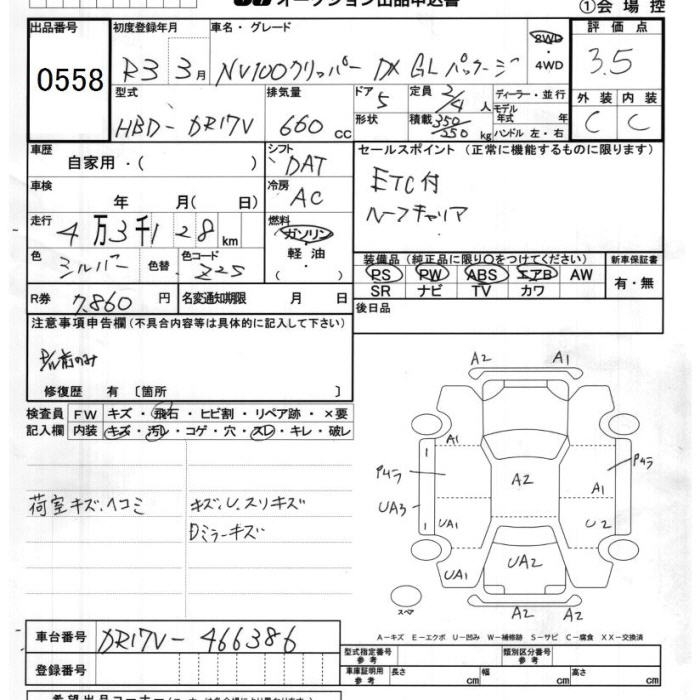 オークション出品申込書
①会場控
出品番号
0558
初度登録年月
R3 3月
車名・グレード
NV100クリッパー DX GLパッケージ
2WD
・4WD
評価点
3.5
型式
HBD-DR17V
排気量
660 cc
ドア
5
形状
定員 2/4 人
積載 350/250 kg
ディーラー・並行
モデル年式 年
ハンドル 左・右
外装 内装
C C
車歴
自家用・( )
シフト
DAT
セールスポイント (正常に機能するものに限ります)
ETC付
ルーフキャリア
車検
年 月( 日)
冷房
AC
走行
4万3千128km
燃料
ガソリン
軽油
色
シルバー
色替
色コード
Z2S
装備品(純正品に限り○をつけてください)
PS PW ABS エアB AW
SR ナビ TV カワ
新車保証書
有・無
R券 7,860 円
名変通知期限 月 日
後日品
注意事項申告欄(不具合内容等は具体的に記入して下さい)
修復歴 有 〔箇所 〕
検査員 FW キズ・飛石・ヒビ割・リペア跡・×要
記入欄 内装 キズ・汚レ・コゲ・穴・スレ・キレ・破レ
荷室キズ、ヘコミ
キズ、U、スリキズ
Dミラーキズ
A2 A1
A1
P4ラ
UA3
UA1
UA1
A2
P4ラ
A1
U2
UA2
A2 A2
1
1
スペア
A-キズ E-エクボ U-凹み W-補修跡 S-サビ C-腐食 XX-交換済
車台番号 DR17V-466386
登録番号
型式指定番号
参考
類別区分番号
参考
車庫証明用
参考
長さ cm
幅 cm
高さ cm
希望出品コーナー